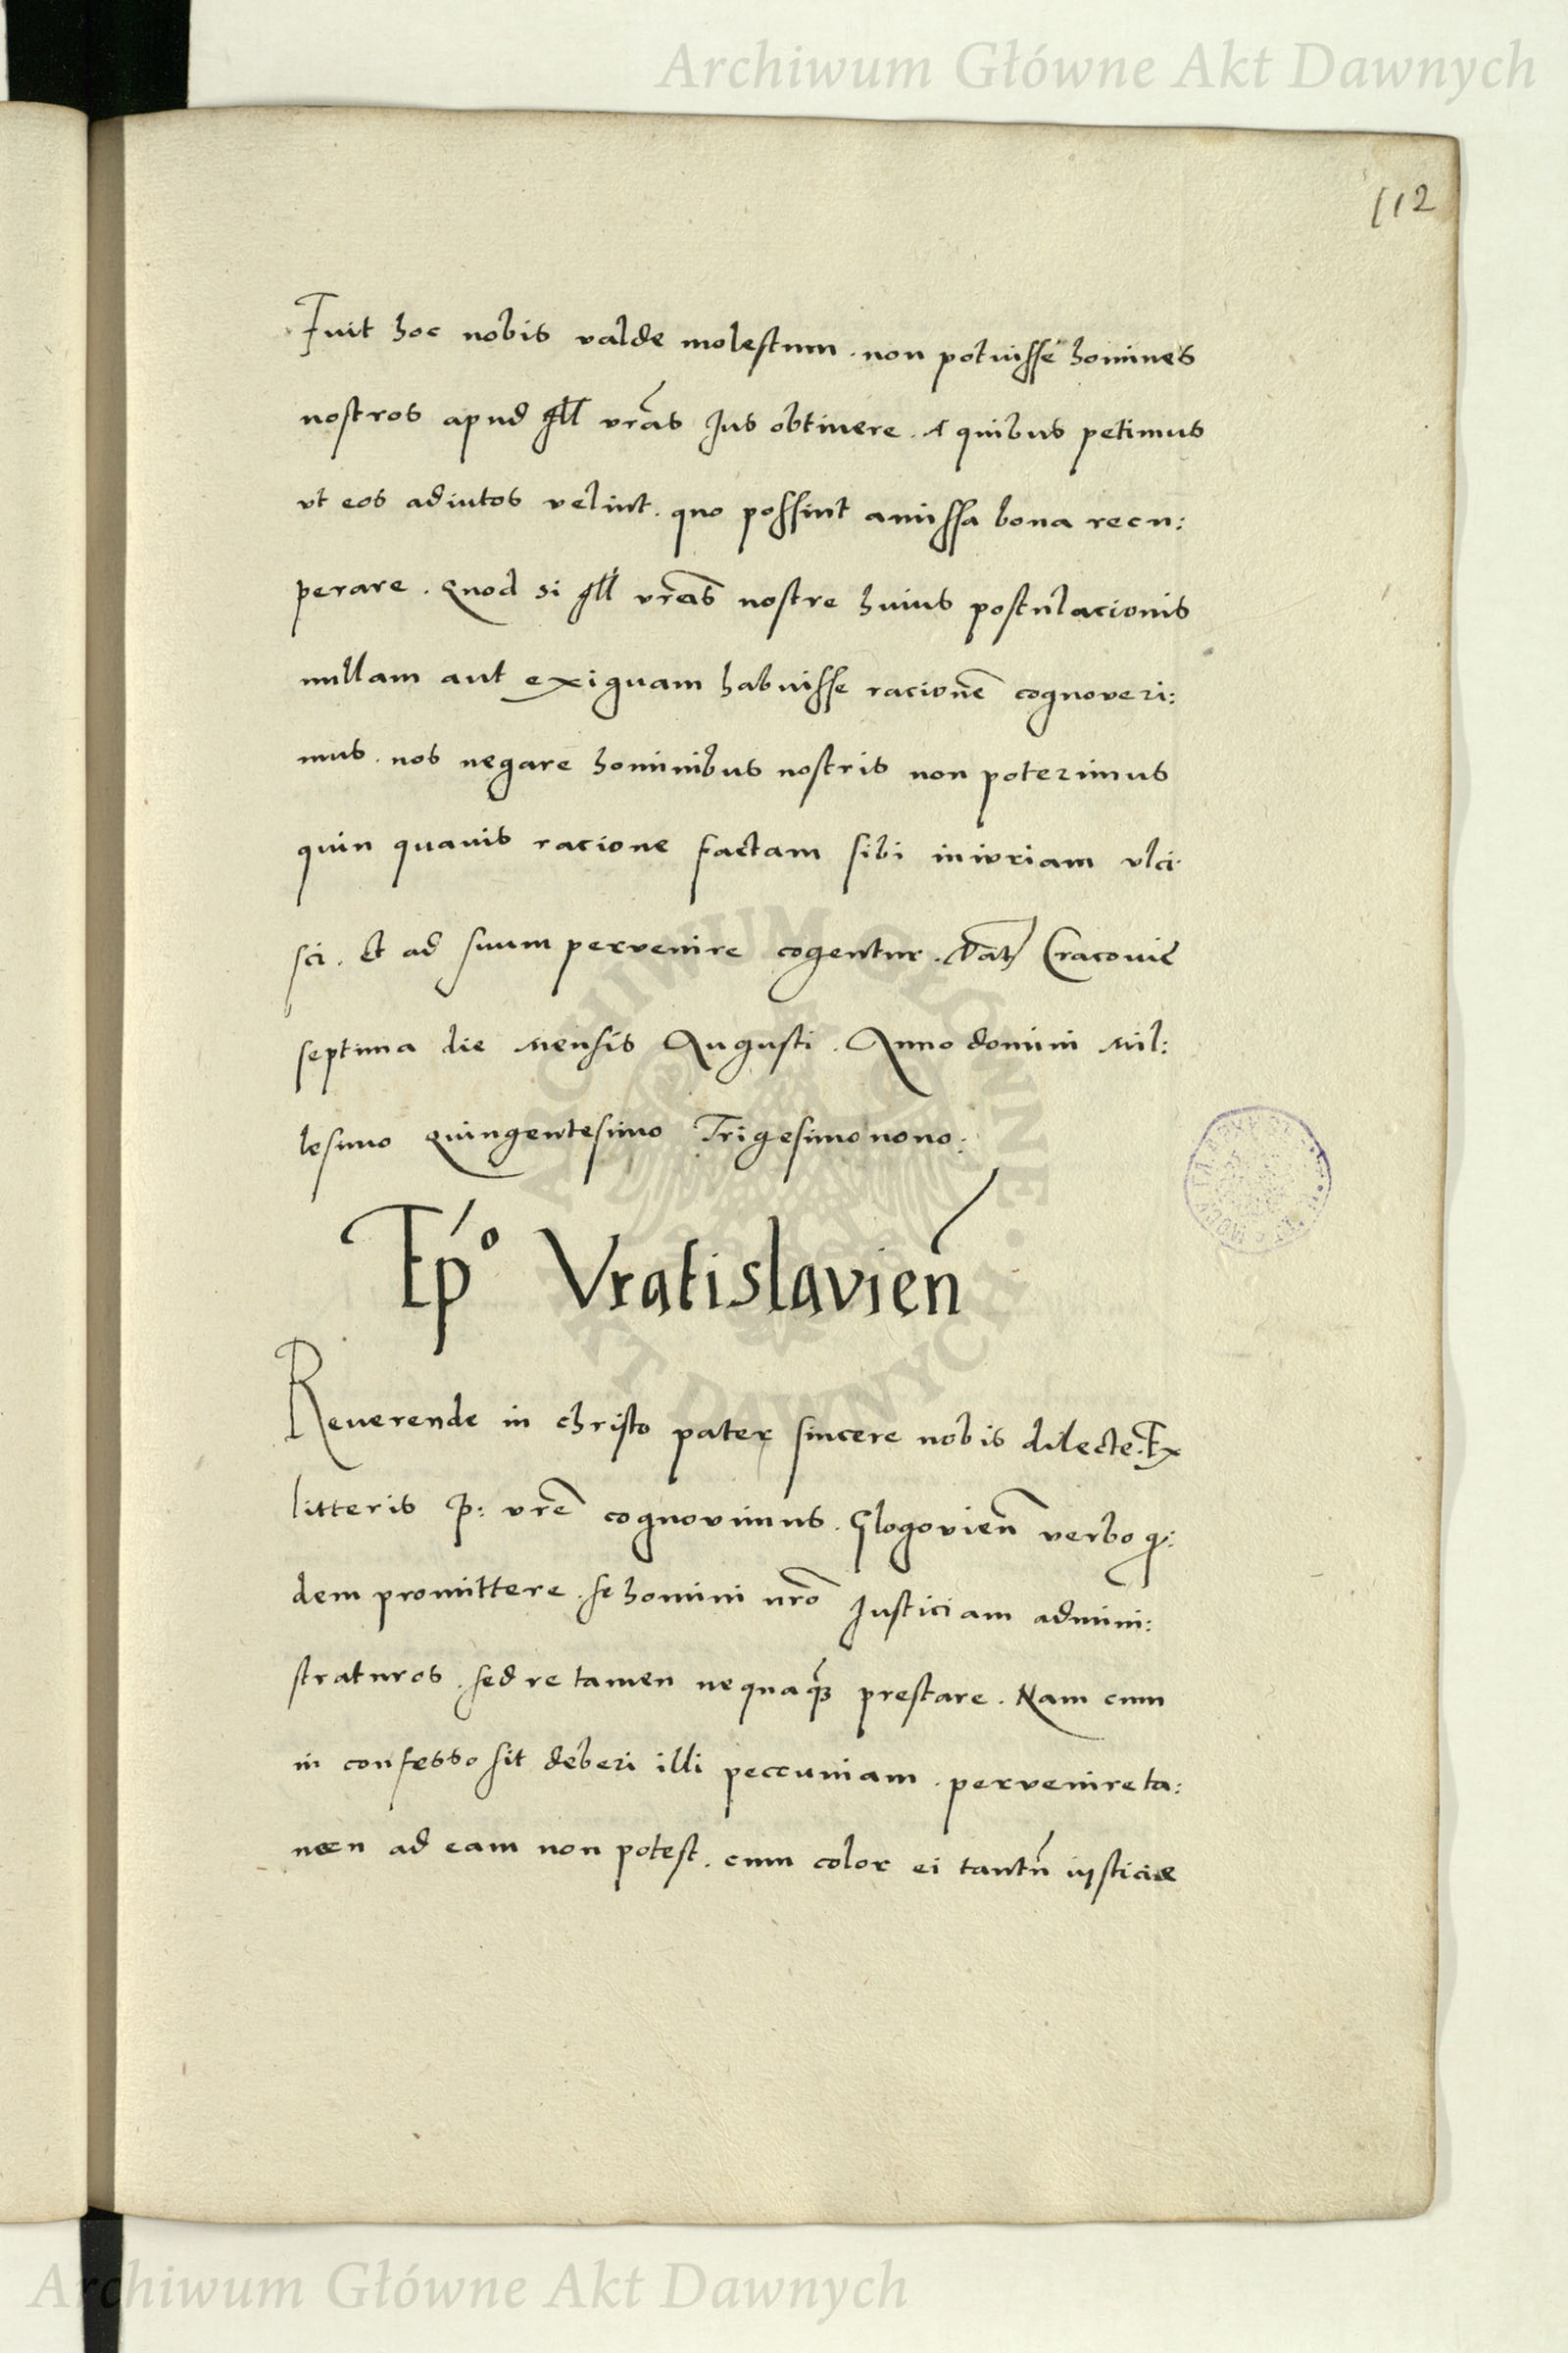 Archiwum Główne Akt Dawnych
112
Fuit hoc nobis valde molestum. non potuisse homines
nostros apud Ill vrãs Ius obtinere. A quibus petimus
vt eos adiutos velint. quo possint amissa bona recu:
perare. Quod si Ill vreãs nostre huius postulacionis
nullam aut exiguam habuisse racionẽ cognoveri:
mus. nos negare hominibus nostris non poterimus
quin quavis racione factam sibi iniuriam vlci:
sci. Et ad suum pervenire cogentur. Dat Cracouiẽ
septima die Mensis Augusti. Anno domini Mil:
lesimo Quingentesimo Trigesimo nono:
Ep̃o Vratislavien̄
Reuerende in christo pater sincere nobis dilecte. Ex
litteris P: vrẽ cognovimus. Glogovien̄ verbo q:
dem promittere. se homini nrõ Iusticiam admini:
straturos. sed re tamen nequaq̃ prestare. Nam cum
in confesso sit deberi illi peccuniam. pervenire ta:
men ad eam non potest. cum color ei tantũ iusticiae
ARCHIWUM GŁÓWNE AKT DAWNYCH
Archiwum Główne Akt Dawnych